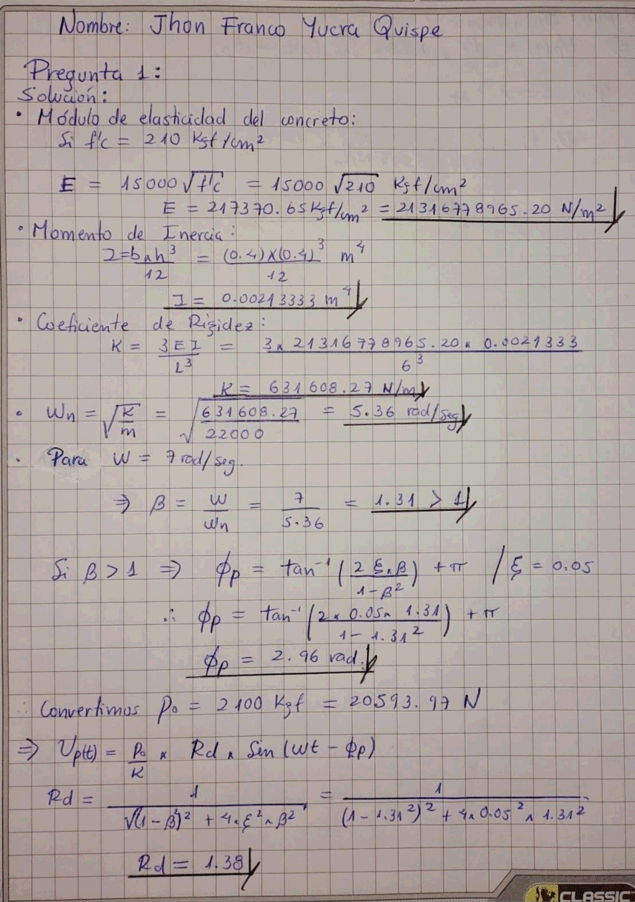 Nombre: Jhon Franco Yucra Quispe
Pregunta 1:
Solución:
• Módulo de elasticidad del concreto:
Si f'c = 210 Kgf/cm²
E = 15000 √f'c = 15000 √210 Kgf/cm²
E = 217370.65 Kgf/cm² = 21316778965.20 N/m²
• Momento de Inercia:
I = b×h³/12 = (0.4)×(0.4)³/12 m⁴
I = 0.00213333 m⁴
• Coeficiente de Rigidez:
K = 3EI/L³ = 3×21316778965.20×0.0021333/6³
K = 631608.27 N/m
• Wn = √(K/m) = √(631608.27/22000) = 5.36 rad/seg
• Para W = 7 rad/seg.
⇒ β = W/Wn = 7/5.36 = 1.31 > 1
Si β > 1 ⇒ ϕp = tan⁻¹(2ξ×β/1-β²) + π / ξ = 0.05
∴ ϕp = tan⁻¹(2×0.05×1.31/1-1.31²) + π
ϕp = 2.96 rad.
∴ Convertimos Po = 2100 Kgf = 20593.97 N
⇒ Up(t) = Po/K × Rd × Sin(wt - ϕp)
Rd = 1/√((1-β²)² + 4×ξ²×β²) = 1/(1-1.31²)² + 4×0.05²×1.31²
Rd = 1.38
CLASSIC